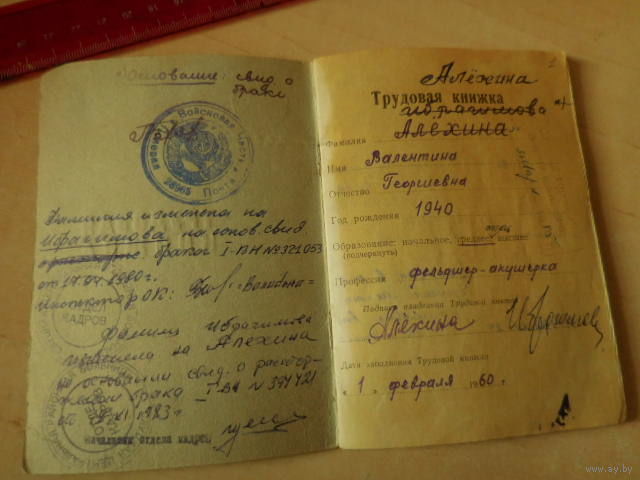 Основание: свид. о
браке
Войсковая часть
Почта
Фамилия изменена на
Ибрагимова на основ. свид.
браке I-ВН № 321053
от 17.07.1980г.
инспектор ОК:
Фамилия Ибрагимова
изменена на Алехина
на основании свид. о растор-
жении брака I-ВА N 394421
1983г.
начальник отдела кадров
Алёхина
Трудовая книжка
Ибрагимова
Фамилия Алехина
Имя Валентина
Отчество Георгиевна
Год рождения 1940
Образование: начальное, среднее, высшее
(подчеркнуть)
Профессия фельдшер-акушерка
Подпись владельца Трудовой книжки
Алёхина
Дата заполнения Трудовой книжки
"1" февраля 1960 г.
www.ay.by